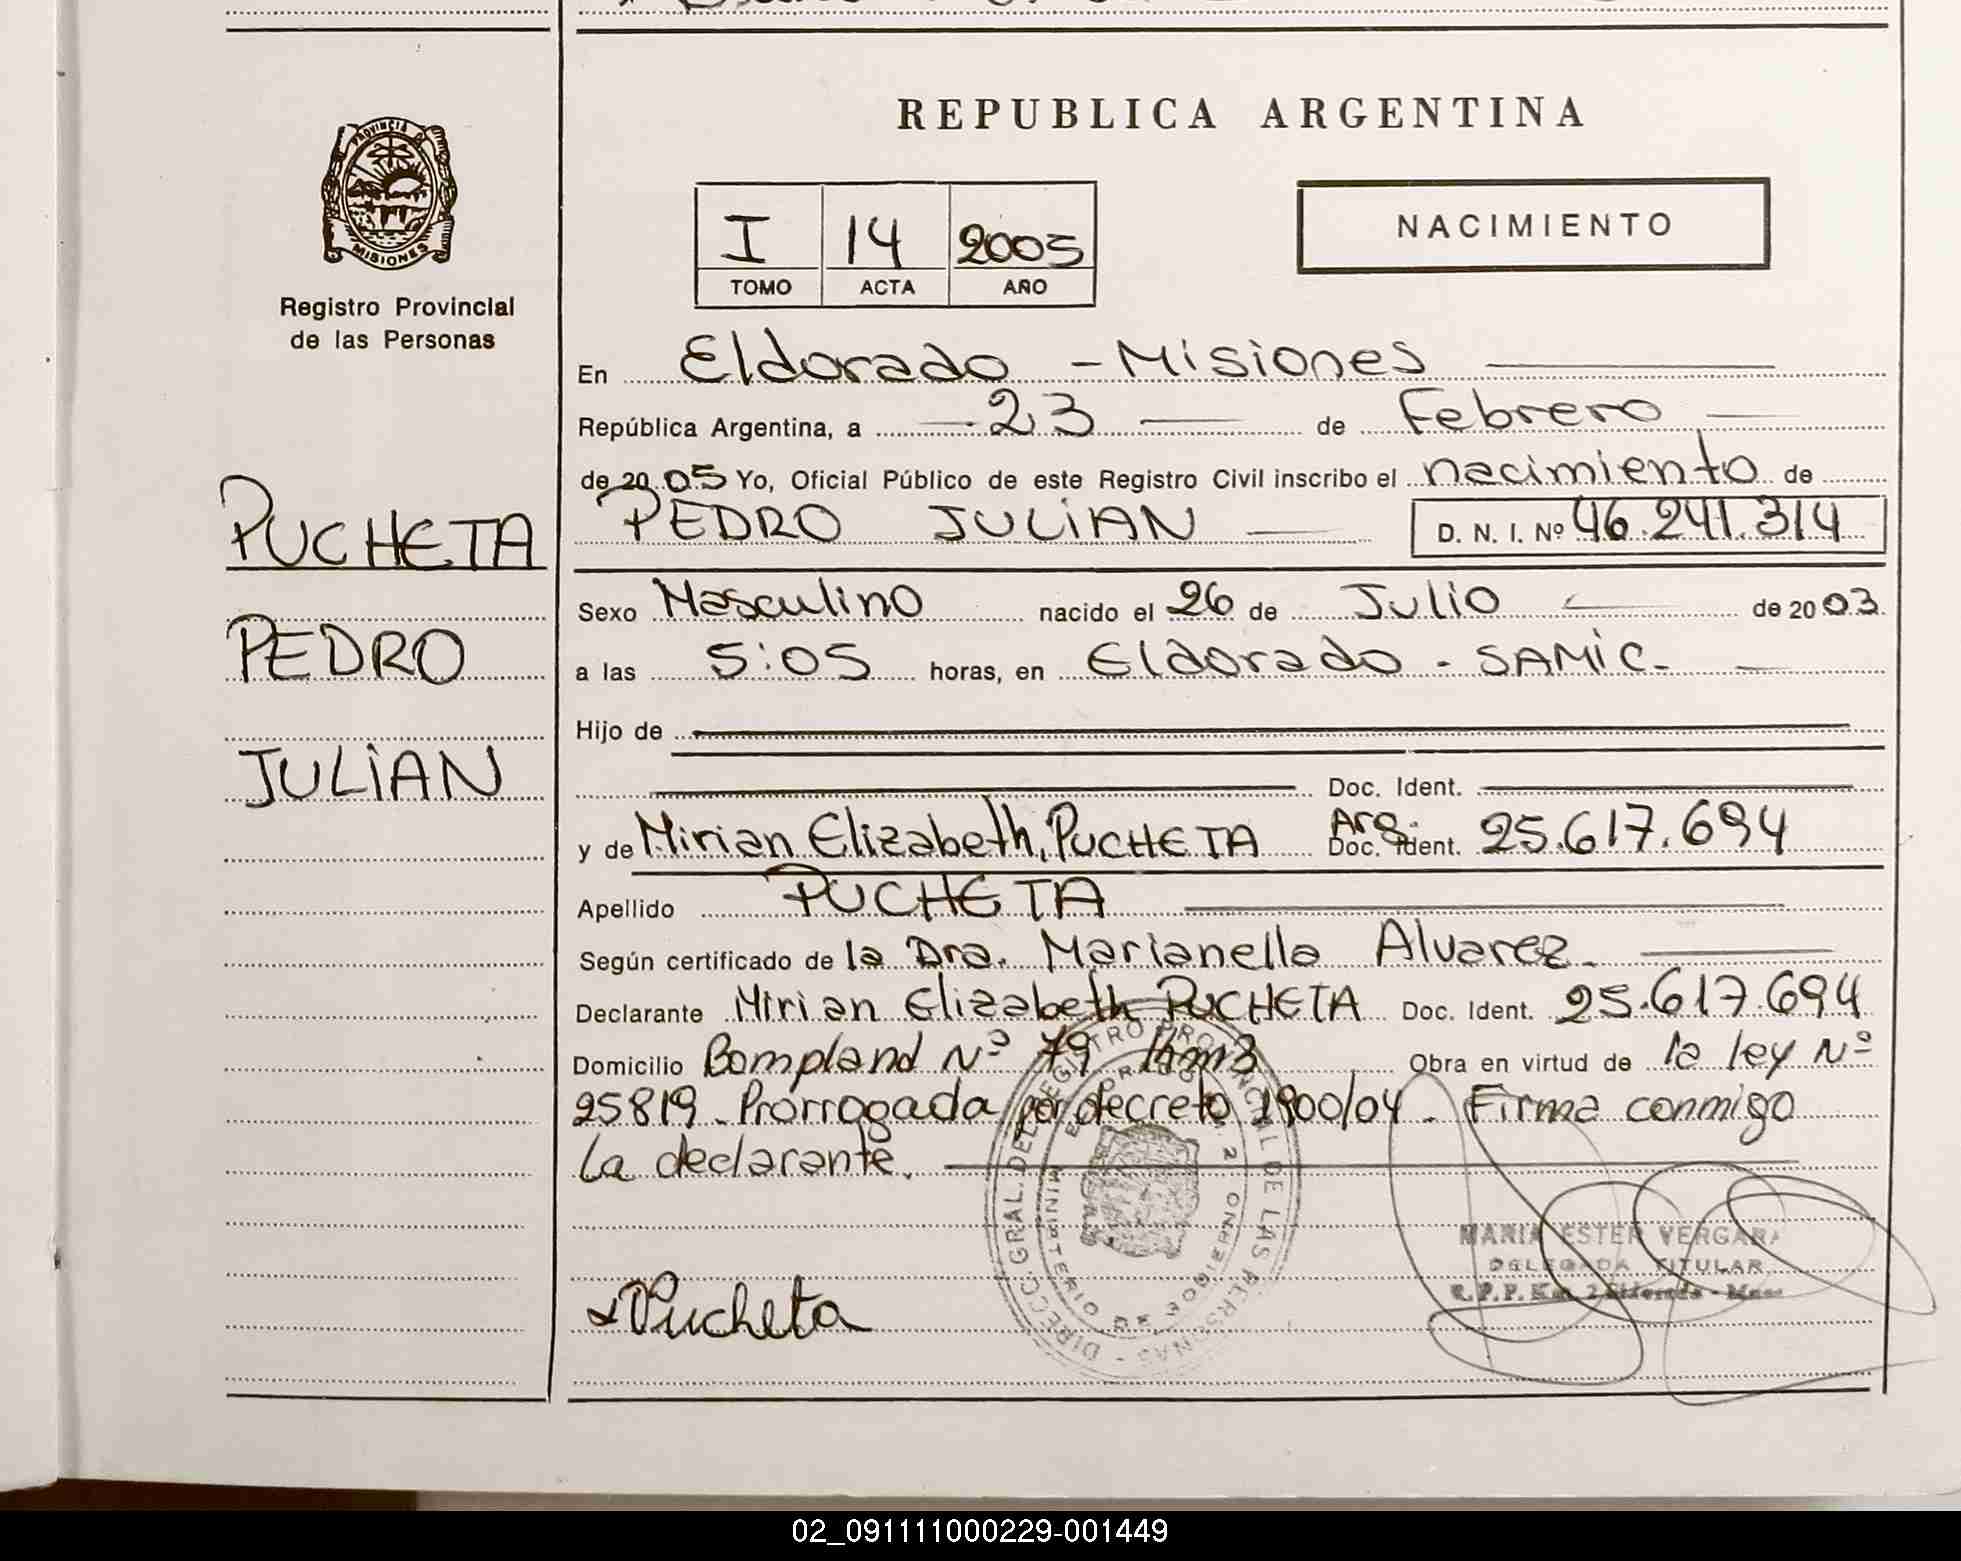 PROVINCIA DE
MISIONES
Registro Provincial
de las Personas
PUCHETA
PEDRO
JULIAN
REPUBLICA ARGENTINA
I 14 2005
TOMO ACTA AÑO
NACIMIENTO
En Eldorado - Misiones
República Argentina, a 23 de Febrero
de 2005 Yo, Oficial Público de este Registro Civil inscribo el nacimiento de
PEDRO JULIAN D. N. I. Nº 46.241.314
Sexo Masculino nacido el 26 de Julio de 2003
a las 5:05 horas, en Eldorado - SAMIC-
Hijo de
Doc. Ident.
y de Mirian Elizabeth, PUCHETA Arg. Doc. Ident. 25.617.694
Apellido PUCHETA
Según certificado de la Dra. Marianella Alvarez-
Declarante Mirian Elizabeth PUCHETA Doc. Ident. 25.617.694
Domicilio Bompland Nº 79 Km3 Obra en virtud de la ley Nº
25819- Prorrogada por decreto 1900/04 - Firma conmigo
La declarante.
DIRECC. GRAL. DEL REGISTRO PROVINCIAL DE LAS PERSONAS -
MINISTERIO DE GOBIERNO
ELDORADO KM. 2
Pucheta
MARIA ESTER VERGARA
DELEGADA TITULAR
R.P.P. Km. 2 Eldorado - Mnes
02_091111000229-001449